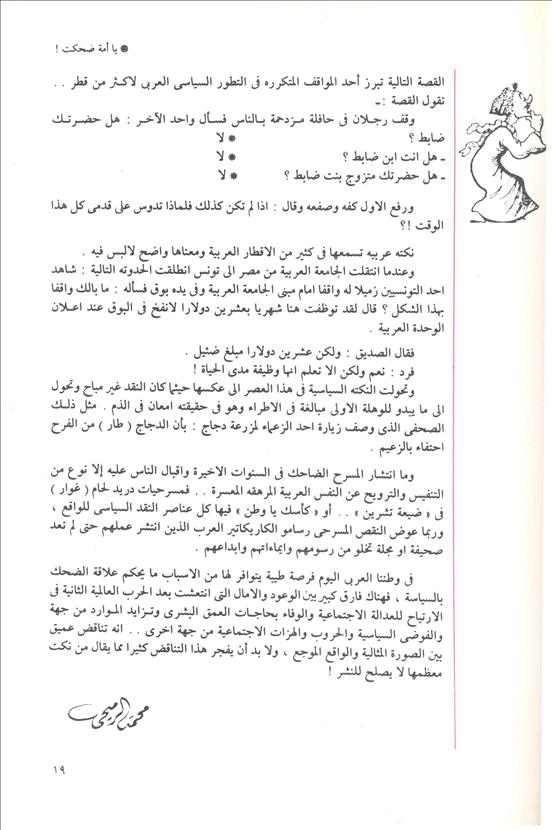 ● يا أمة ضحكت !
القصة التالية تبرز أحد المواقف المتكرره فى التطور السياسى العربى لاكثر من قطر . .
تقول القصة :ـ
وقف رجلان فى حافلة مزدحمة بالناس فسأل واحد الآخر : هل حضرتك
ضابط ؟ * لا
ـ هل انت ابن ضابط ؟ * لا
ـ هل حضرتك متزوج بنت ضابط ؟ * لا
ورفع الاول كفه وصفعه وقال : اذا لم تكن كذلك فلماذا تدوس على قدمى كل هذا
الوقت !؟
نكته عربيه تسمعها فى كثير من الاقطار العربية ومعناها واضح لالبس فيه .
وعندما انتقلت الجامعة العربية من مصر الى تونس انطلقت الحدوته التالية : شاهد
احد التونسيين زميلا له واقفا امام مبنى الجامعة العربية وفى يده بوق فسأله : ما بالك واقفا
بهذا الشكل ؟ قال لقد توظفت هنا شهريا بعشرين دولارا لانفخ فى البوق عند اعلان
الوحدة العربية .
فقال الصديق : ولكن عشرين دولارا مبلغ ضئيل .
فرد : نعم ولكن الا تعلم انها وظيفة مدى الحياة !
وتحولت النكته السياسية فى هذا العصر الى عكسها حيثما كان النقد غير مباح وتحول
الى ما يبدو للوهلة الاولى مبالغة فى الاطراء وهو فى حقيقته امعان فى الذم . مثل ذلك
الصحفى الذى وصف زيارة احد الزعماء لمزرعة دجاج : بأن الدجاج ( طار ) من الفرح
احتفاء بالزعيم .
وما انتشار المسرح الضاحك فى السنوات الاخيرة واقبال الناس عليه إلا نوع من
التنفيس والترويح عن النفس العربية المرهقه المعسرة . . فمسرحيات دريد لحام ( غوار )
فى « ضيعة تشرين » . . أو « كأسك يا وطن » فيها كل عناصر النقد السياسى للواقع ،
وربما عوض النقص المسرحى رسامو الكاريكاتير العرب الذين انتشر عملهم حتى لم تعد
صحيفة او مجلة تخلو من رسومهم وايماءاتهم وابداعهم .
فى وطننا العربى اليوم فرصة طيبة يتوافر لها من الاسباب ما يحكم علاقة الضحك
بالسياسة ، فهناك فارق كبير بين الوعود والامال التى انتعشت بعد الحرب العالمية الثانية فى
الارتياح للعدالة الاجتماعية والوفاء بحاجات العمق البشرى وتزايد الموارد من جهة
والفوضى السياسية والحروب والهزات الاجتماعية من جهة اخرى . . انه تناقض عميق
بين الصورة المثالية والواقع الموجع ، ولا بد أن يفجر هذا التناقض كثيرا مما يقال من نكت
معظمها لا يصلح للنشر !
محمد الرميحى
١٩